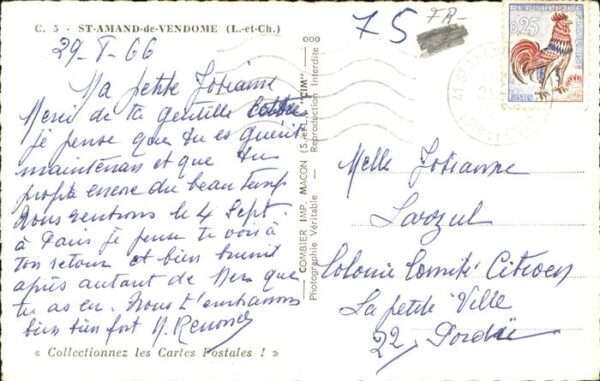 C. 5 - ST-AMAND-de-VENDOME (L.-et-Ch.)
75 FR-
0,25
29-8-66
Ma petite Josianne
Merci de ta gentille
je pense que tu es guérie
maintenant et que tu
profite encore du beau temps
nous rentrons le 4 Sept.
à Paris je pense te voir à
ton retour et bien brunie
après autant de Mer que
tu as eu. Nous t'embrassons
bien bien fort M.
« Collectionnez les Cartes Postales ! »
COMBIER IMP. MACON (S.-et-L.) "CIM"
Photographie Véritable - Reproduction Interdite
Melle Josianne
Colonie Comité Citroen
La petite Ville
22